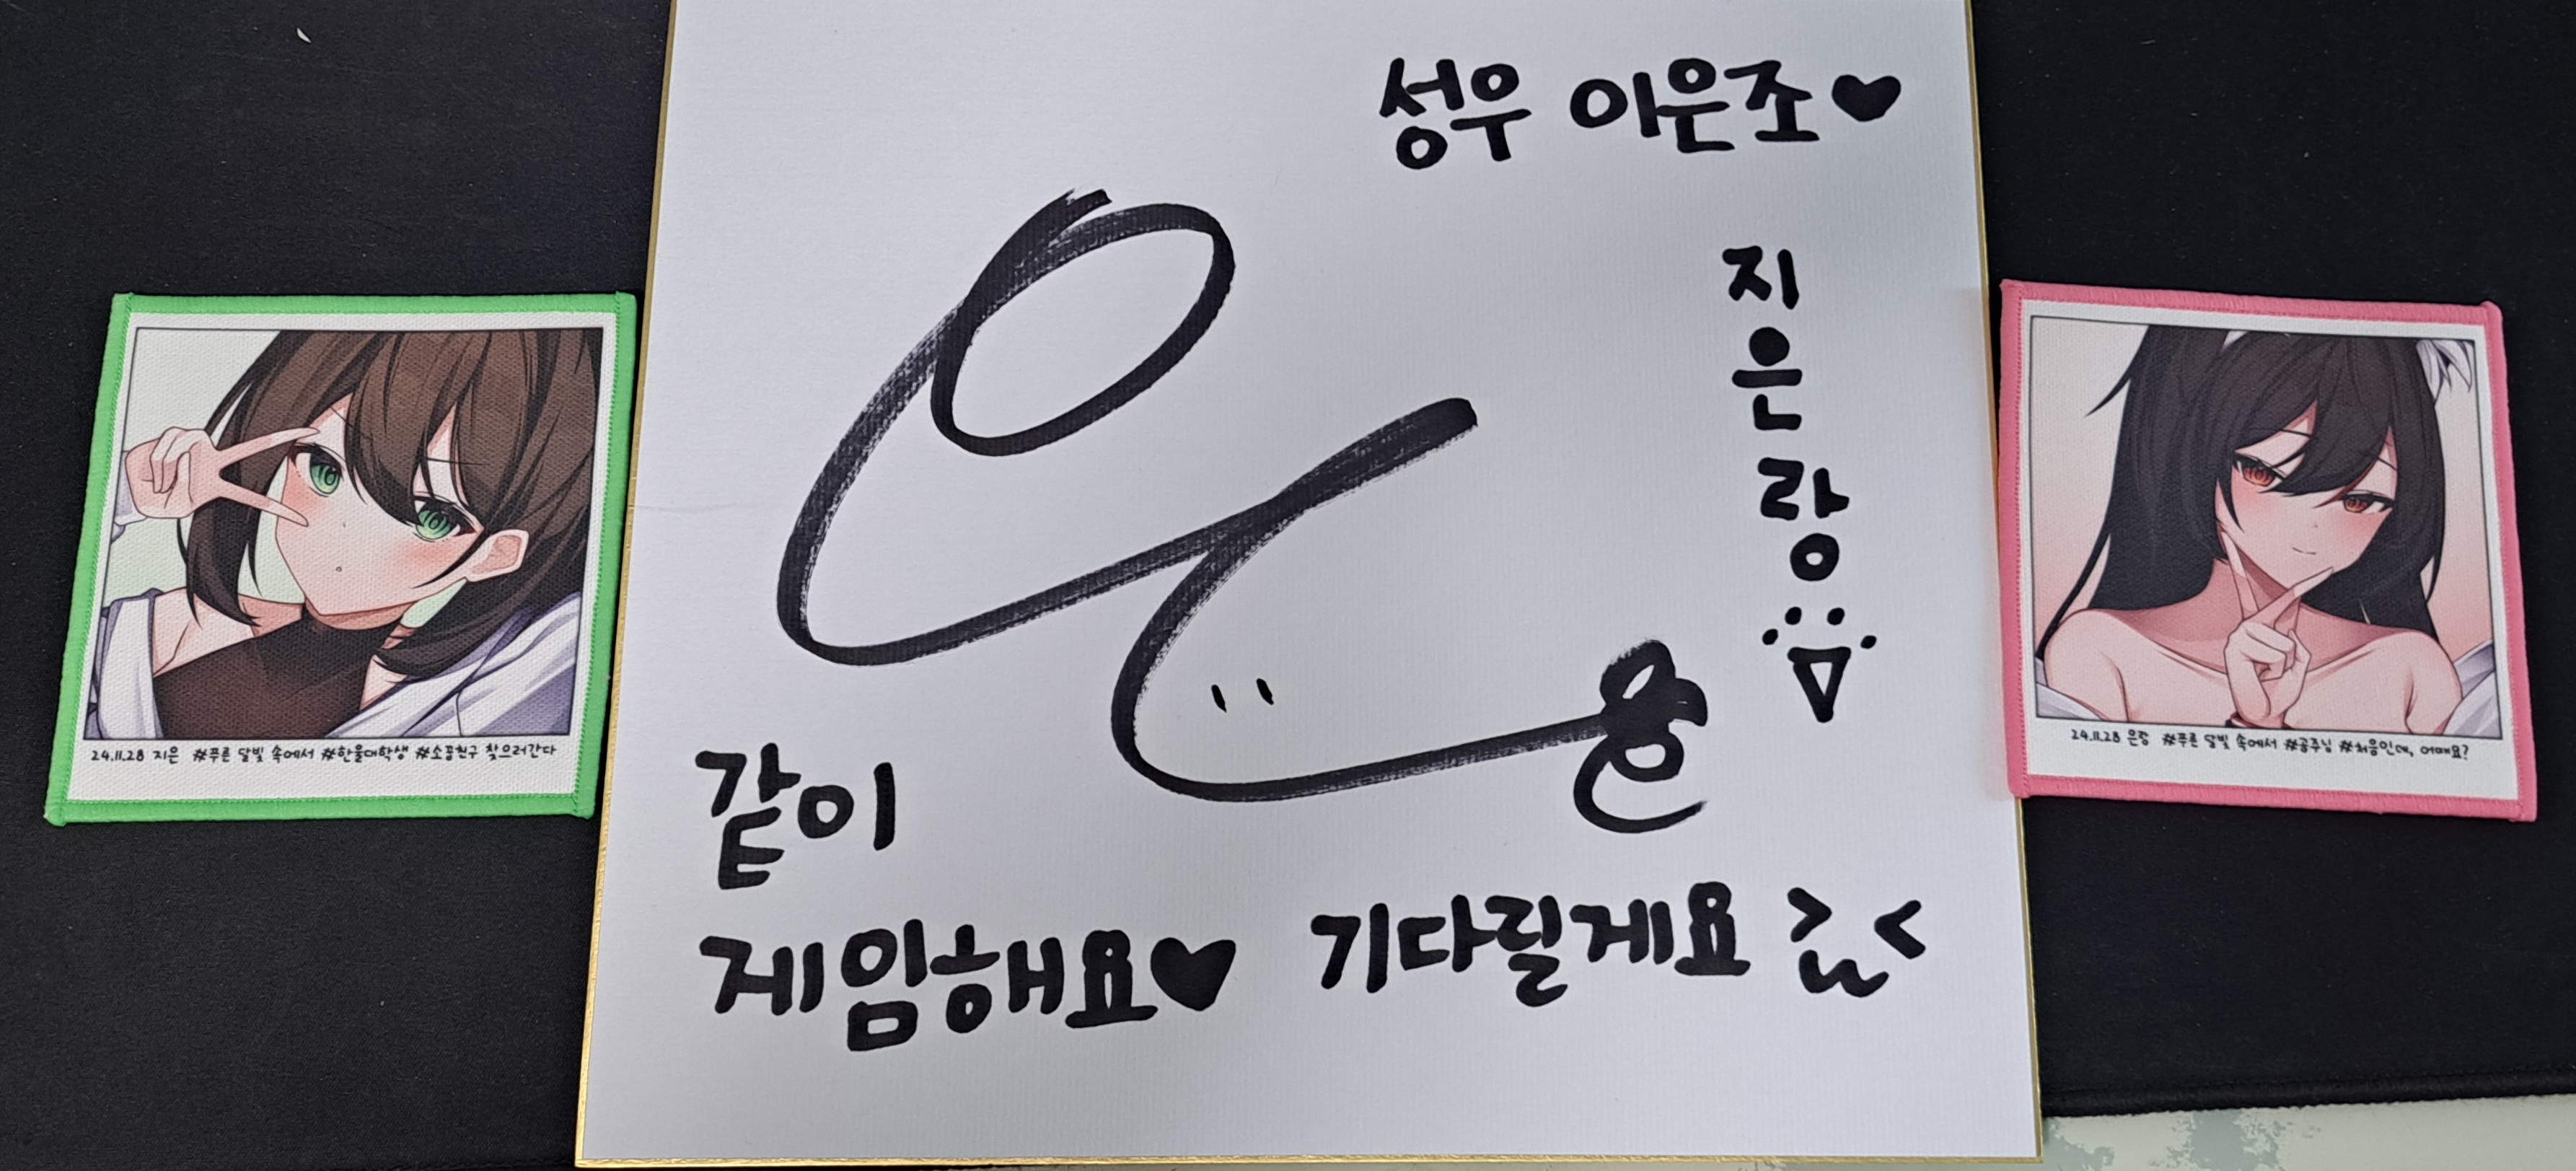 성우 이은조♥
지은랑
같이
제임해요♥
기다릴게요 >ㅆ<
24.11.28 지은 #푸른 달빛 속에서 #한울대학생 #소꿉친구 찾으러간다
24.11.28 은랑 #푸른 달빛 속에서 #공주님 #처음인데, 어때요?